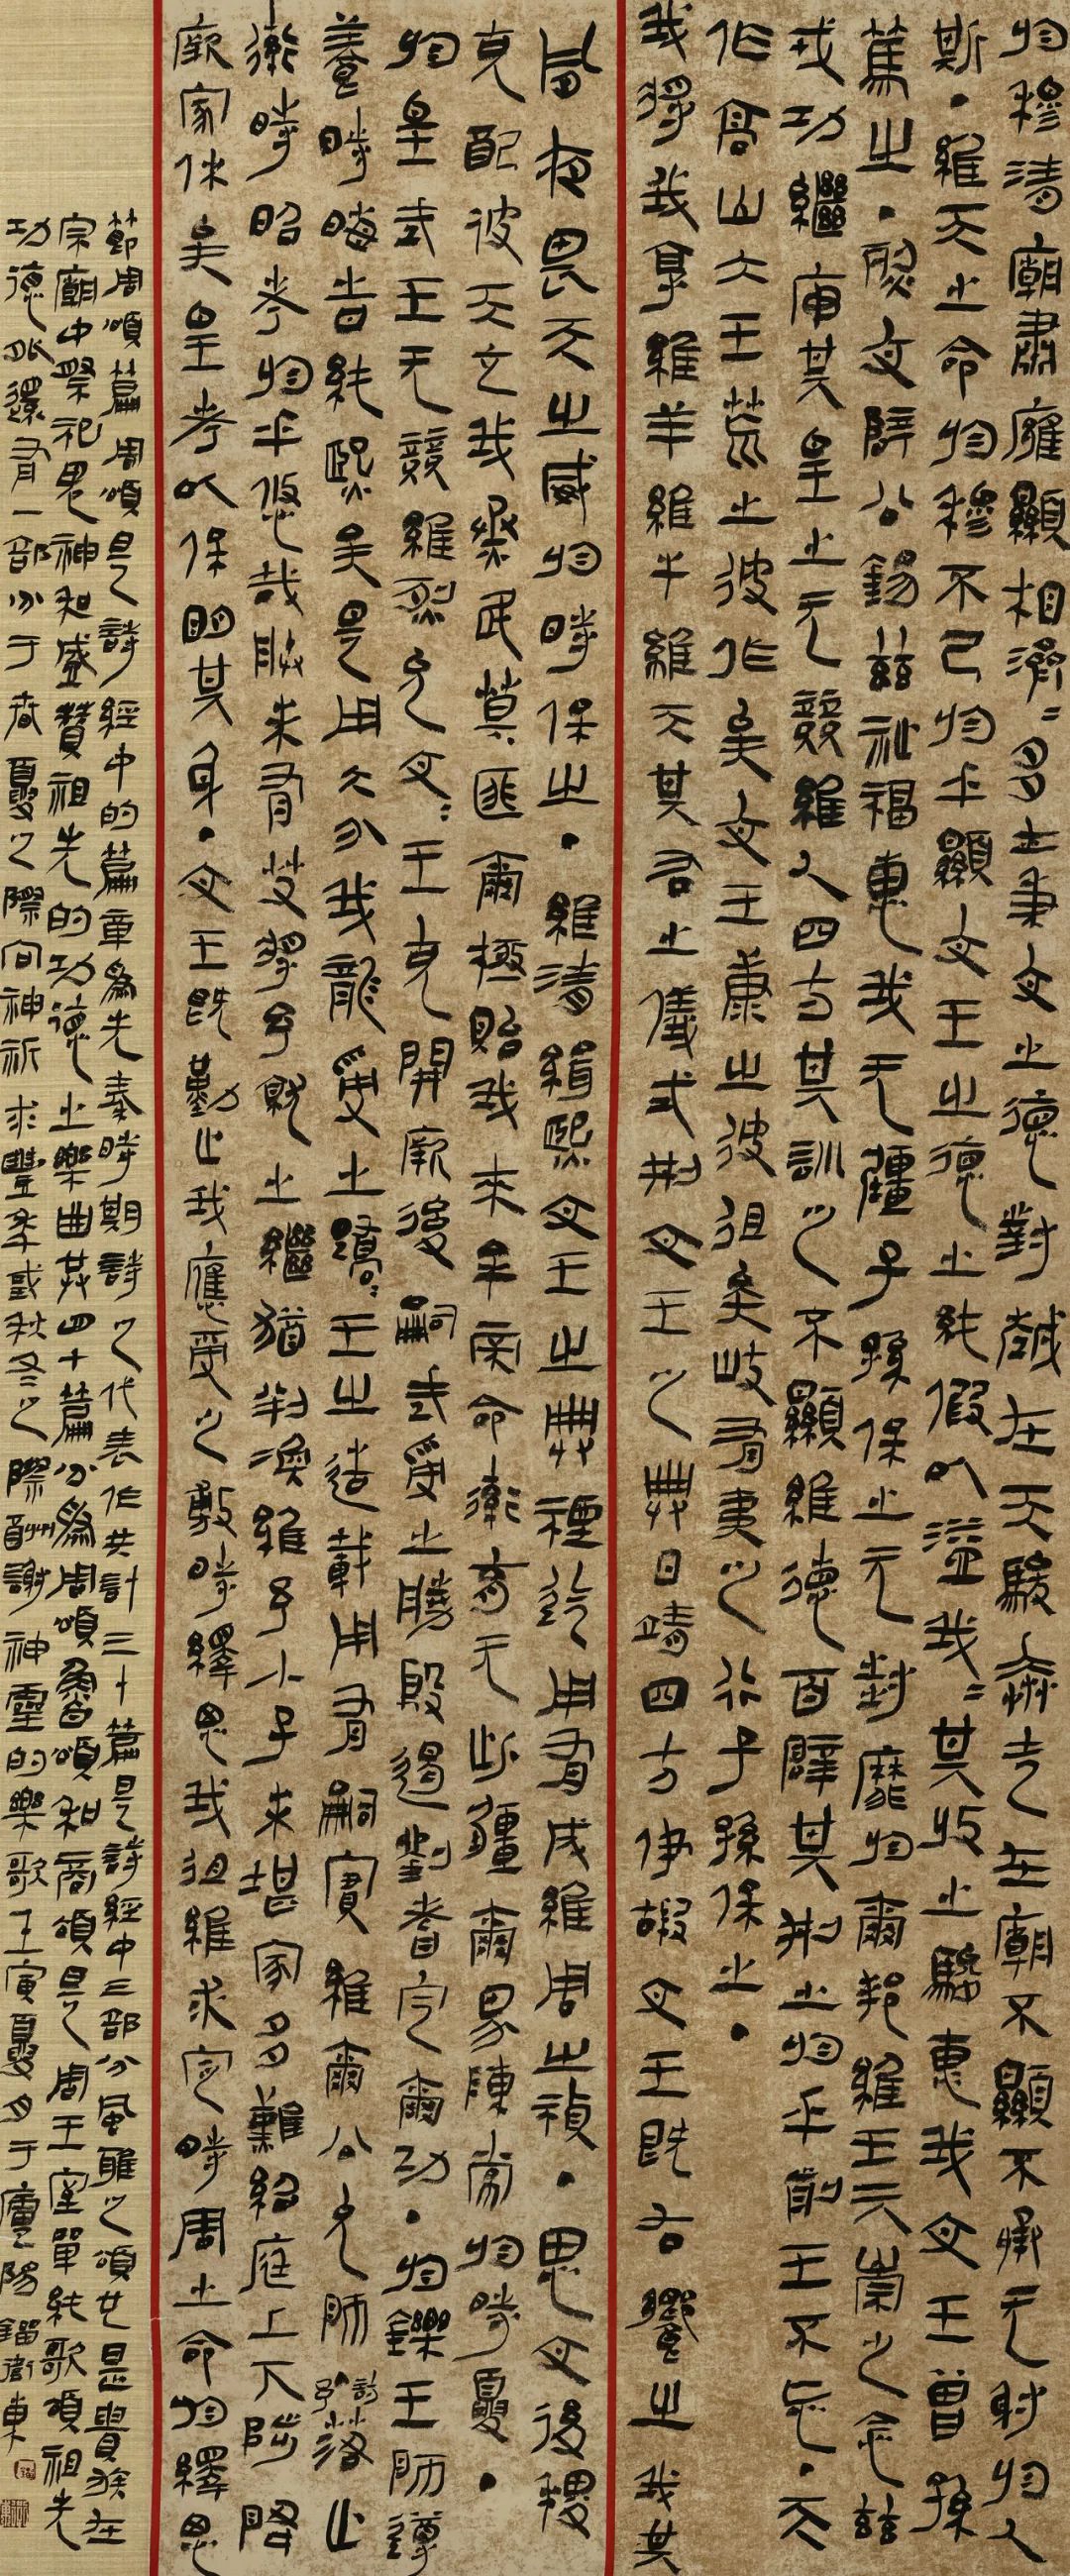 於穆清廟肅雍顯相濟〻多士秉文之德對越在天駿奔走在廟不顯不承无射於人
斯・維天之命於穆不已於乎顯文王之德之純假以溢我〻其收之駿惠我文王曾孫
篤之・烈文辟公錫茲祉福惠我无疆子孫保之无封靡於爾邦維王其崇之念茲
戎功繼序其皇之无競維人四方其訓之不顯維德百辟其刑之於乎前王不忘・天
作高山大王荒之彼作矣文王康之彼徂矣岐有夷之行子孫保之・
我將我享維羊維牛維天其右之儀式刑文王之典日靖四方伊嘏文王既右饗之我其
夙夜畏天之威於時保之・維清緝熙文王之典禋迄用有成維周之禎・思文後稷
克配彼天立我烝民莫匪爾極貽我來牟帝命率育无此疆爾界陳常於時夏・
於皇武王无競維烈允文〻王克開厥後嗣武受之勝殷遏劉耆定爾功・於鑠王師遵
養時晦昔純熙矣是用大介我龍受之蹻〻王之造載用有嗣實維爾公允師訪予落止
率時昭考於乎悠哉朕未有艾將予就之繼猶判渙維予小子未堪家多難紹庭上下陟降
厥家休矣皇考以保明其身・文王既勤止我應受之敷時繹思我徂維求定時周之命於繹思
節周頌篇周頌是詩經中的篇章為先秦時期詩之代表作共計三十一篇是詩經中三部分風雅之頌也是貴族在
宗廟中祭祀鬼神和盛贊祖先的功德之樂曲共四十篇分為周頌魯頌和商頌是周王室單純歌頌祖先
功德此還有一部分于春夏之際向神祈求豐年或秋冬之際酬謝神靈的樂歌王寅夏月于廬陽 衛東